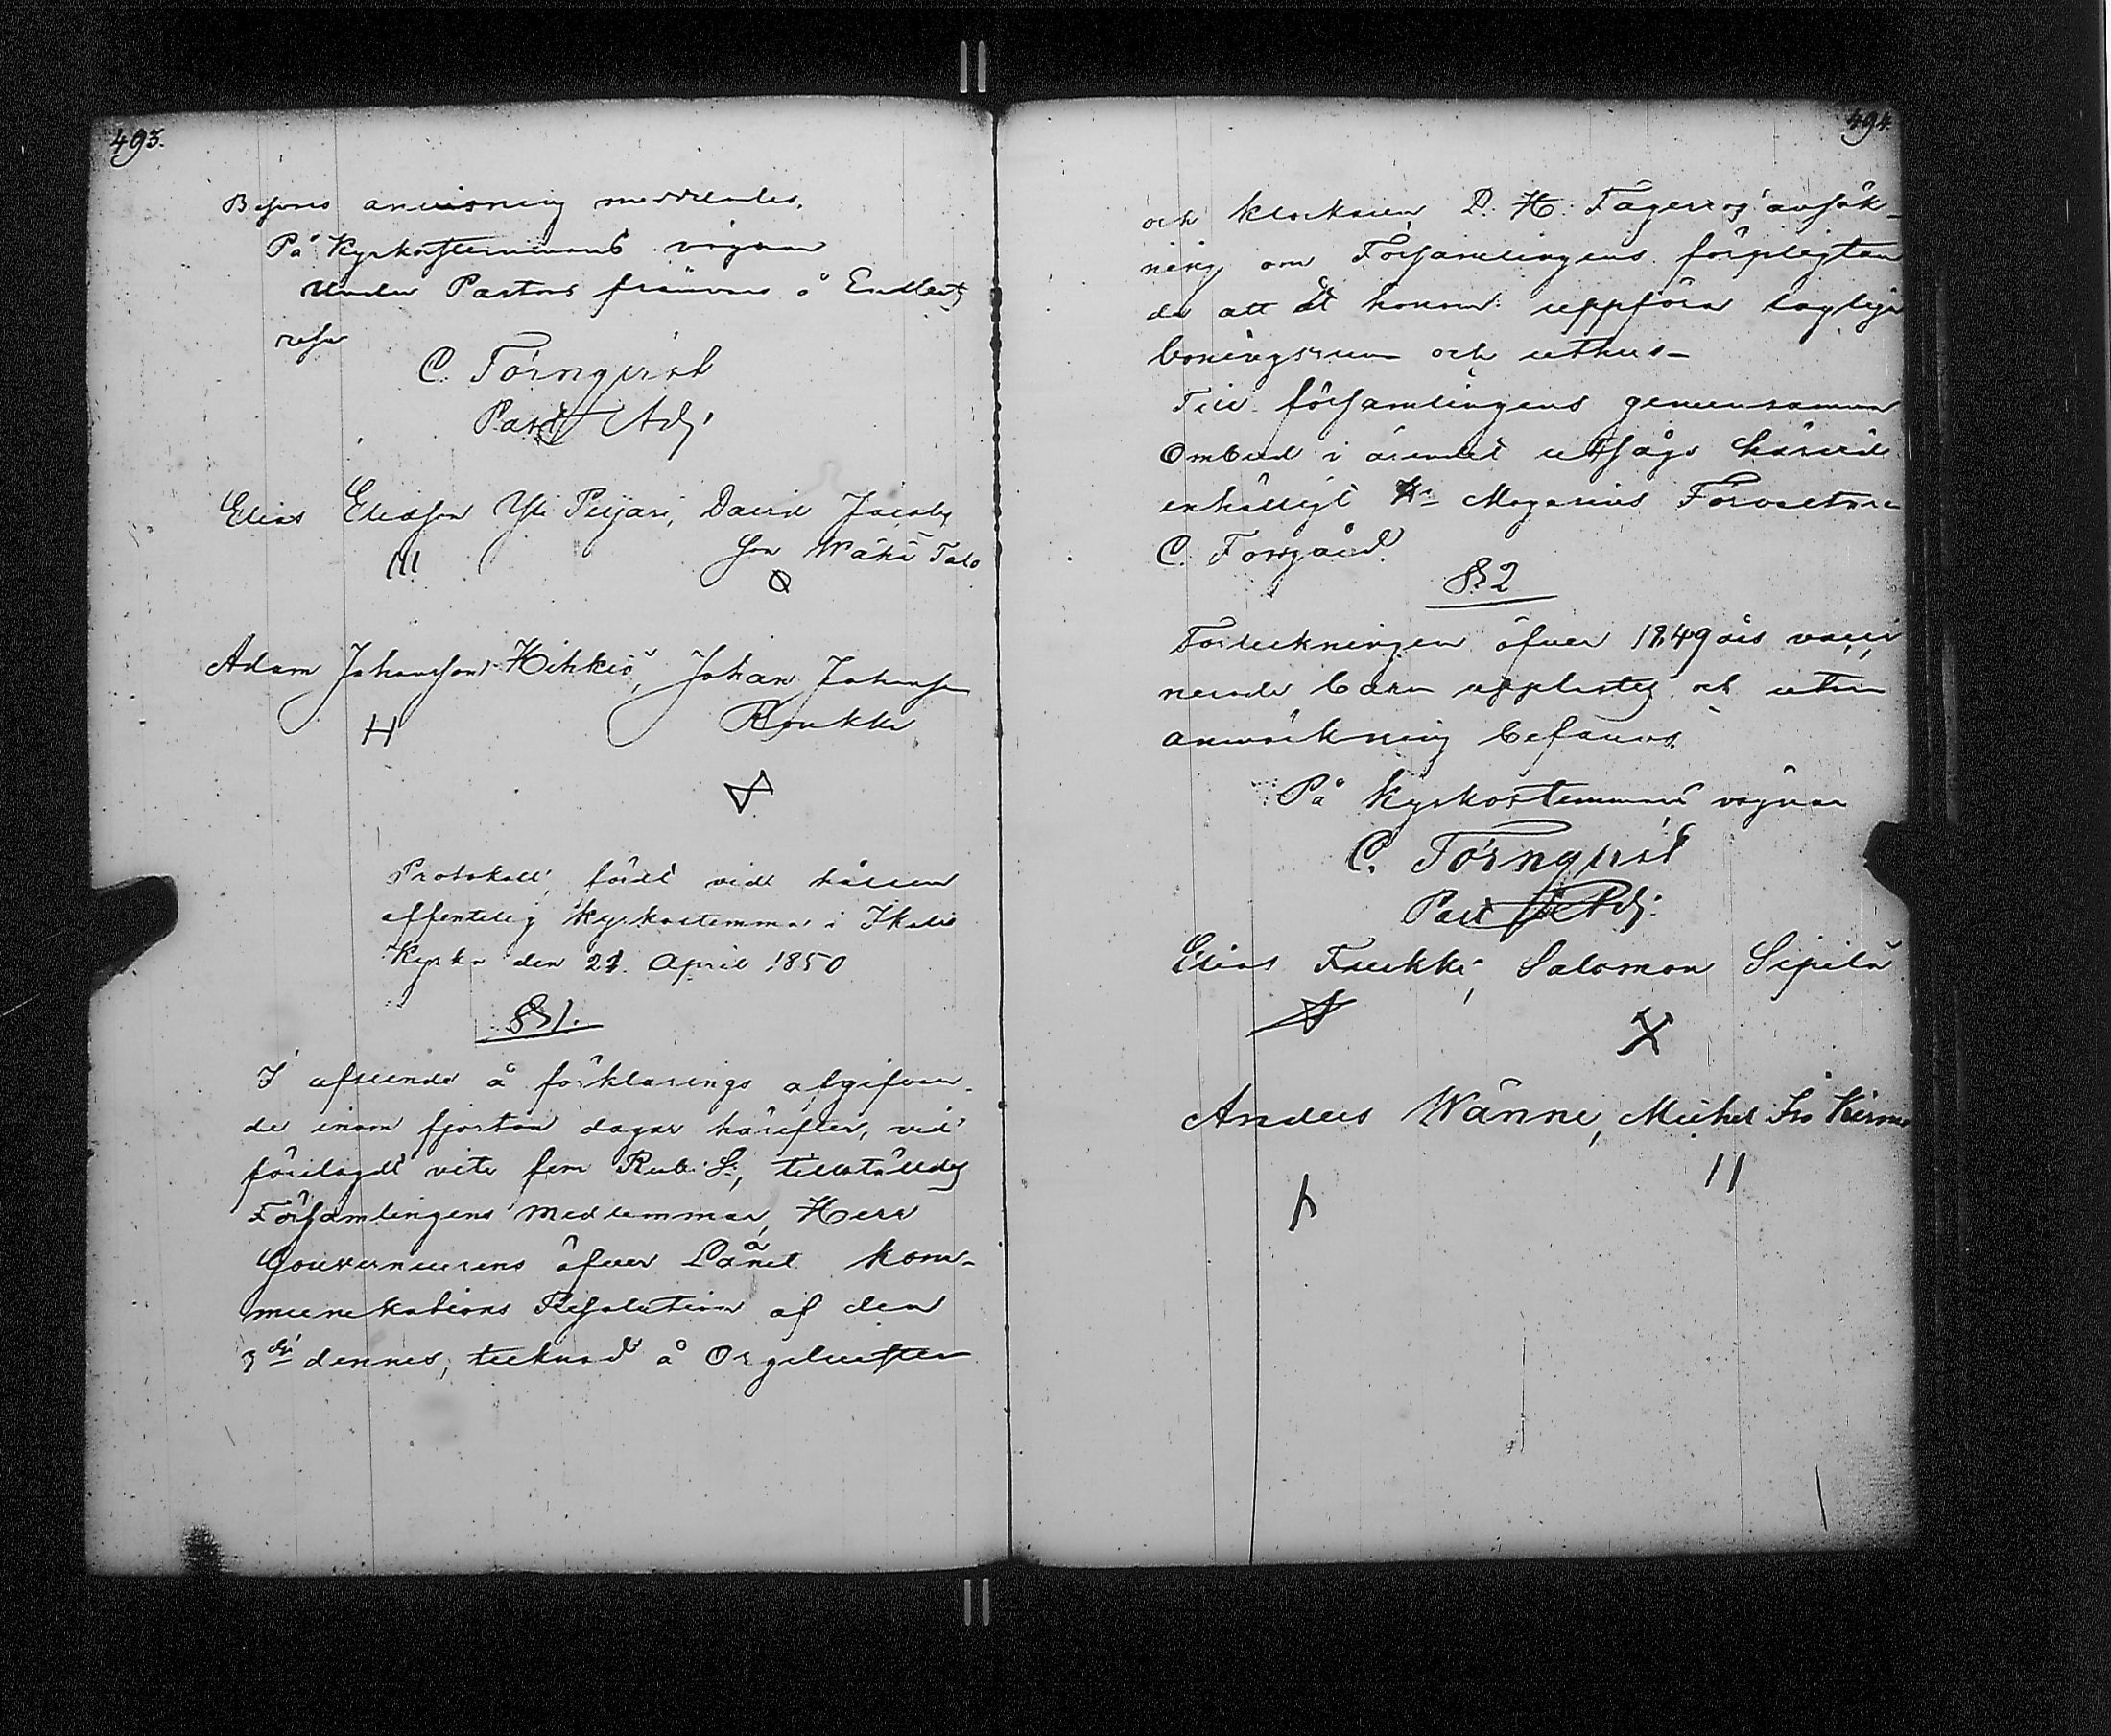 493.
Besvers anvisning meddelades.
På Kyrkostemmans vägnar
Under Pastors frånvaro å Embets
resa
C. Törnqvist
Past Adj.
Elias Eliasson Yli Peijari, David Jacobs
son Wähä Talo
Adam Johansson Hihkiö, Johan Johansson
Roukka
Protokoll, fördt vid hållen
offentelig kyrkostemma i Ikalis
Kyrka den 21. April 1850
§ 1.
I afseende å förklarings afgifvan-
de inom fjorton dagar härefter, vid
förelagdt vite fem Rub. S:, tillstäldes
Församlingens medlemmar, Herr
Gouverneurens öfver Länet kom-
munikations Resolution af den
3dje dennes, tecknad å Orgelnisten
494.
och klockaren D. H. Fagerros ansök-
ning om Församlingens förpligtan
de att åt honom uppföra laglige
boningsrum och uthus-
Till församlingens gemensamma
Ombud i ärendet utsågs härvid
enhälligt Hr Magasins Förvaltare
C. Forsgård.
§ 2
Förteckningen öfver 1849 års vacci
nerade barn upplästes och utan
anmärkning befanns.
På Kyrkostemmans vägnar
C. Törnqvist
Past Adj.
Elias Frekki, Salomon Sipilä
Anders Wänni, Michel Iso Kirmu